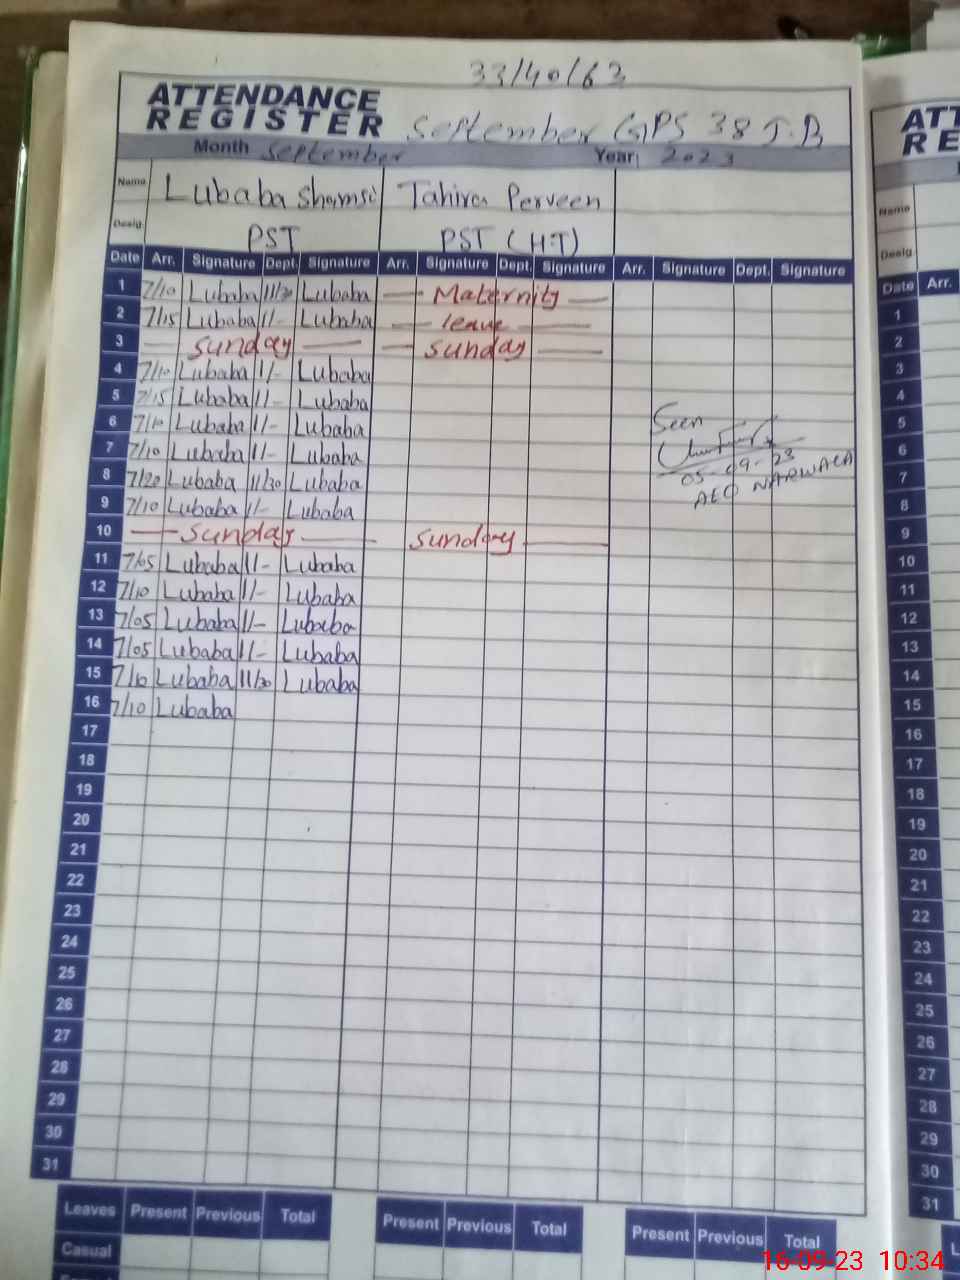 33/40/63
ATTENDANCE
REGISTER September GPS 38 J.B
Month September Year 2023
Name Lubaba Shamsi Tahira Perveen
Desig. PST PST (H.T)
Date Arr. Signature Dept. Signature Arr. Signature Dept. Signature Arr. Signature Dept. Signature
1 7/10 Lubaba 11/30 Lubaba — Maternity —
2 7/15 Lubaba 11/- Lubaba — leave —
3 — Sunday — — Sunday —
4 7/10 Lubaba 11/- Lubaba
5 7/15 Lubaba 11/- Lubaba
6 7/10 Lubaba 11/- Lubaba
7 7/10 Lubaba 11/- Lubaba
8 7/20 Lubaba 11/30 Lubaba
9 7/10 Lubaba 11/- Lubaba
Seen
05-09-23
AEO NARWALA
10 — Sunday — Sunday —
11 7/05 Lubaba 11/- Lubaba
12 7/10 Lubaba 11/- Lubaba
13 7/05 Lubaba 11/- Lubaba
14 7/05 Lubaba 11/- Lubaba
15 7/10 Lubaba 11/30 Lubaba
16 7/10 Lubaba
17
18
19
20
21
22
23
24
25
26
27
28
29
30
31
Leaves Present Previous Total Present Previous Total Present Previous Total
Casual
ATT
RE
Name
Desig.
Date Arr.
1
2
3
4
5
6
7
8
9
10
11
12
13
14
15
16
17
18
19
20
21
22
23
24
25
26
27
28
29
30
31
16-09-23 10:34